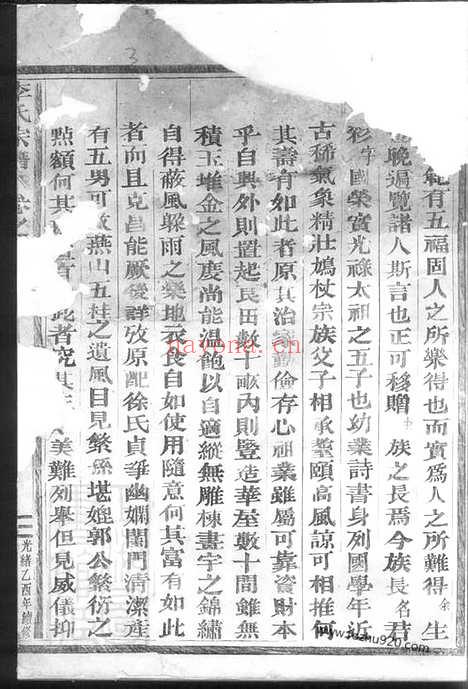 範有五福固人之所樂得也而實爲人之所難得余生
晚遍覽諸人斯言也正可移贈 族之長爲今族長名君
彩字國榮實光祿太祖之五子也幼業詩書身列國學年近
古稀氣象精壯鳩杖宗族父子相承塋頤高風諒可相推何
其壽有如此者原其治 勤儉存心祖業雖屬可靠資財本
乎自興外則置起良田數十畝內則豎造華屋數十間雖無
積玉堆金之風度尚能溫飽以自適縱無雕棟畫宇之錦繡
自得蔽風躲雨之樂地衣食自如使用隨意何其富有如此
者而且克昌能厥後詳攷原配徐氏貞靜幽嫻閨門清潔產
有五男可 燕山五桂之遺風目見繁無堪媲郭公繁衍之
點額何其 此者究其 美難列舉但見威儀抑
氏宗譜 卷之
光緒乙酉年續修
3
hayona.cn
www.kongfz920.com